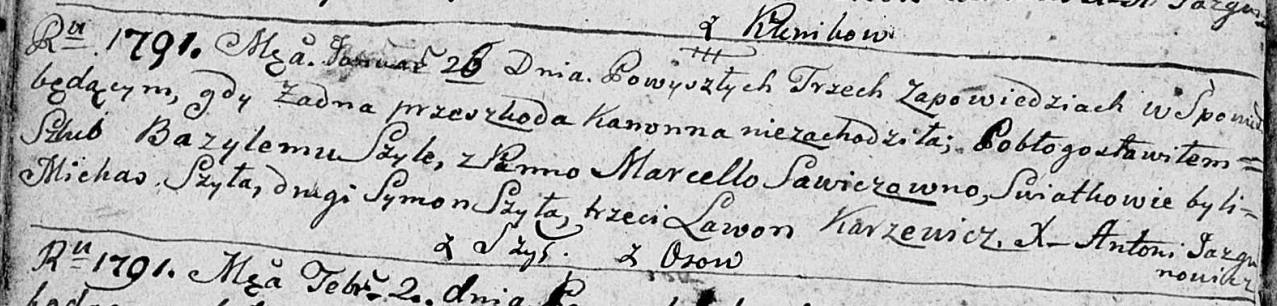 z Klenikow
Rᵘ 1791. Męа̊. Januar 26 Dnia. Powyszłych Trzech Zapowiedziach w Spowied
będącym, gdy Żadna przeszkoda Kanonna niezachodziła; Pobłogosławiłem =
Szlub Bazylemu Szyle, z Panno Marcello Sawiczowno, Swiatkowie byli =
Michas Szyła, drugi Symon Szyła, trzeci Lawon Karzewicz. X– Antoni Jazgu
nowicz
z Szył. z Osow
Rᵘ 1791. Męа̊ Febr. 2. dnia